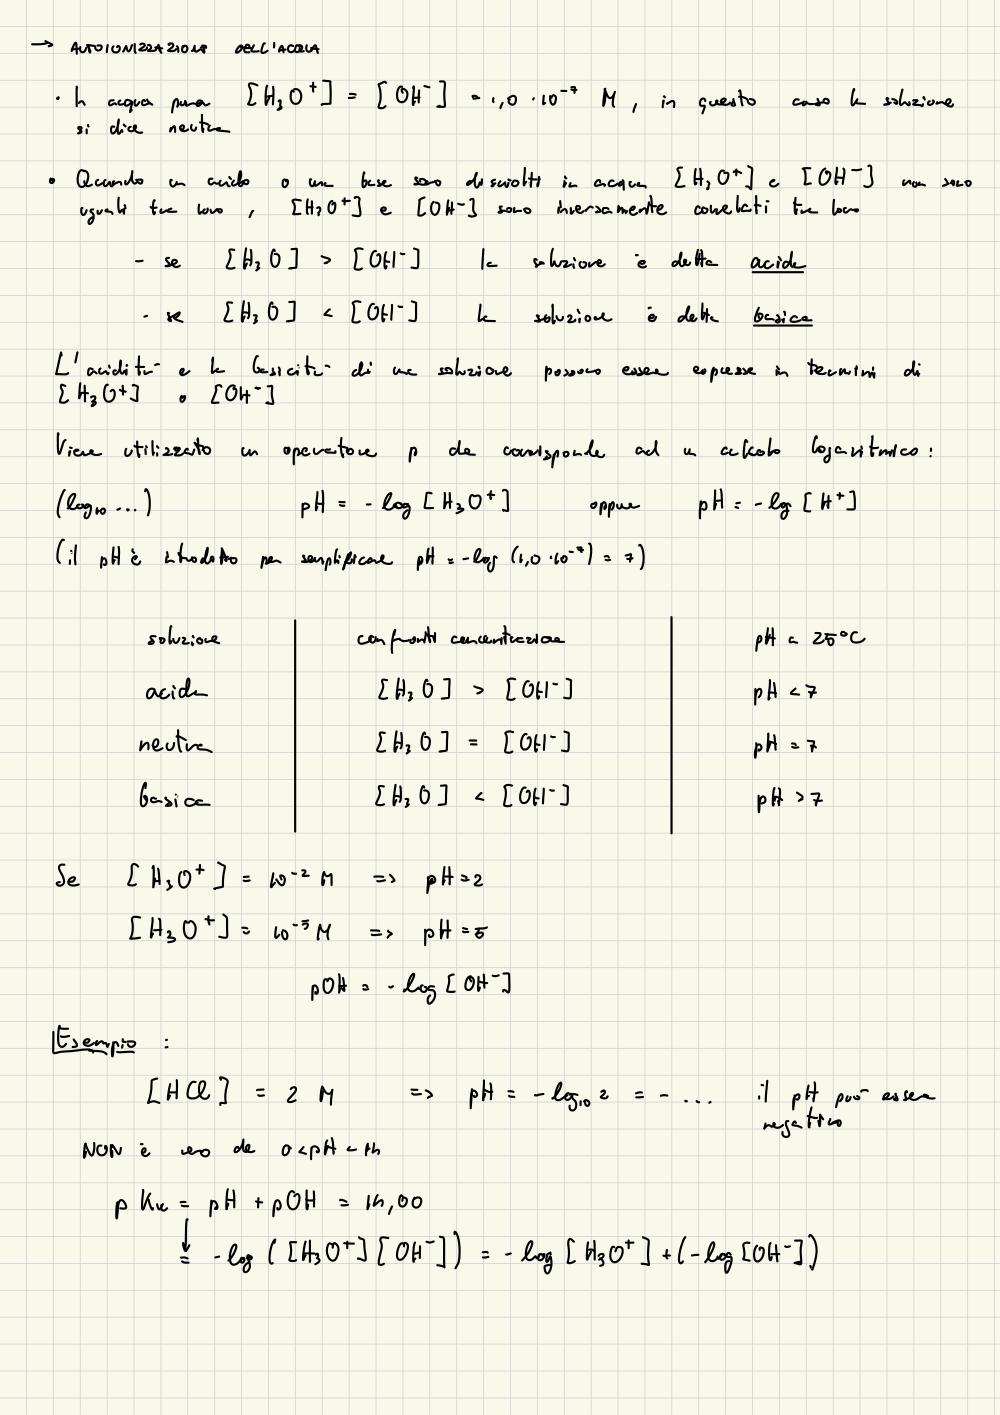 → AUTOIONIZZAZIONE DELL'ACQUA
• In acqua pura [H₃O⁺] = [OH⁻] = 1,0 · 10⁻⁷ M, in questo caso la soluzione
si dice neutra
• Quando un acido o una base sono disciolti in acqua [H₃O⁺] e [OH⁻] non sono
uguali tra loro, [H₃O⁺] e [OH⁻] sono inversamente correlati tra loro
- se [H₃O] > [OH⁻] la soluzione è detta acida
- se [H₃O] < [OH⁻] la soluzione è detta basica
L'acidità e la basicità di una soluzione possono essere espresse in termini di
[H₃O⁺] o [OH⁻]
Viene utilizzato un operatore p che corrisponde ad un calcolo logaritmico:
(log₁₀ ...) pH = -log [H₃O⁺] oppure pH = -log [H⁺]
(il pH è introdotto per semplificare pH = -log (1,0 · 10⁻⁷) = 7)
soluzione confronti concentrazione pH a 25°C
acida [H₃O] > [OH⁻] pH < 7
neutra [H₃O] = [OH⁻] pH = 7
basica [H₃O] < [OH⁻] pH > 7
Se [H₃O⁺] = 10⁻² M => pH = 2
[H₃O⁺] = 10⁻⁵ M => pH = 5
pOH = -log [OH⁻]
Esempio :
[HCl] = 2 M => pH = -log₁₀ 2 = - ... il pH può essere
negativo
NON è vero che 0 < pH < 14
pKw = pH + pOH = 14,00
↓
= -log ([H₃O⁺][OH⁻]) = -log [H₃O⁺] + (-log [OH⁻])